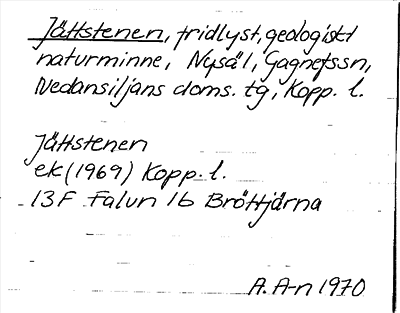 Jättstenen, fridlyst, geologiskt
naturminne, Nysäl, Gagnefssn,
Nedansiljans doms. tg, Kopp. l.
Jättstenen
ek (1969) Kopp. l.
13F Falun 1b Bröttjärna
A. A-n 1970